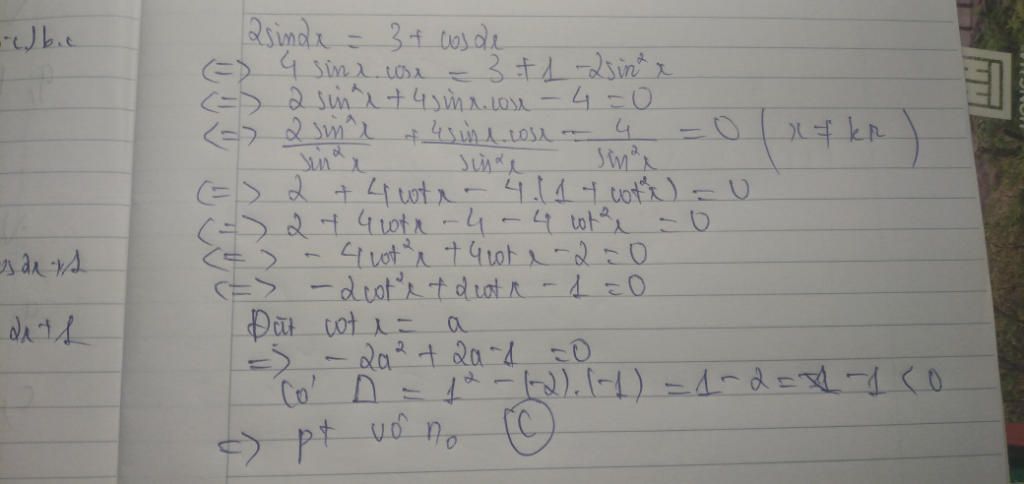 -c)b.c
2sin2x = 3 + cos2x
<=> 4 sinx.cosx = 3 + 1 - 2sin²x
<=> 2 sin²x + 4sinx.cosx - 4 = 0
<=> 2 sin²x / sin²x + 4sinx.cosx / sin²x - 4 / sin²x = 0 ( x ≠ kπ )
<=> 2 + 4 cot x - 4.(1 + cot²x) = 0
<=> 2 + 4cotx - 4 - 4 cot²x = 0
<=> - 4cot²x + 4cot x - 2 = 0
os2x + 1
<=> - 2cot²x + 2cot x - 1 = 0
2x + 1
Đặt cot x = a
=> - 2a² + 2a - 1 = 0
Có Δ = 1² - (-2).(-1) = 1 - 2 = - 1 < 0
=> pt vô n₀ C